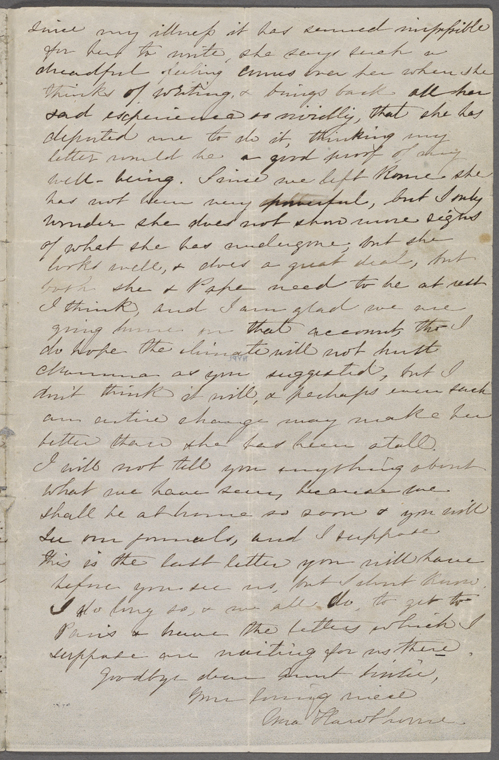 since my illness it has seemed impossible
for her to write, she says such a
dreadful feeling comes over her when she
thinks of writing, & brings back all her
sad experience so vividly, that she has
deputed me to do it, thinking my
letter would be a good proof of my
well-being. Since we left Rome she
has not been very powerful, but I only
wonder she does not show more signs
of what she has undergone, but she
looks well, & does a great deal, but
both she & Papa need to be at rest
I think, and I am glad we are
going home on that account, tho' I
do hope the climate will not hurt
Mamma as you suggested, but I
don't think it will, & perhaps even such
an entire change may make her
better than she has been atall.
I will not tell you anything about
what we have seen, because we
shall be at home so soon & you will
see our journals, and I suppose
this is the last letter you will have
before you see us, but I dont know.
I do long so, & we all do, to get to
Paris & have the letters which I
suppose are waiting for us there.
Goodbye dear Aunt
Your loving niece
Una Hawthorne.